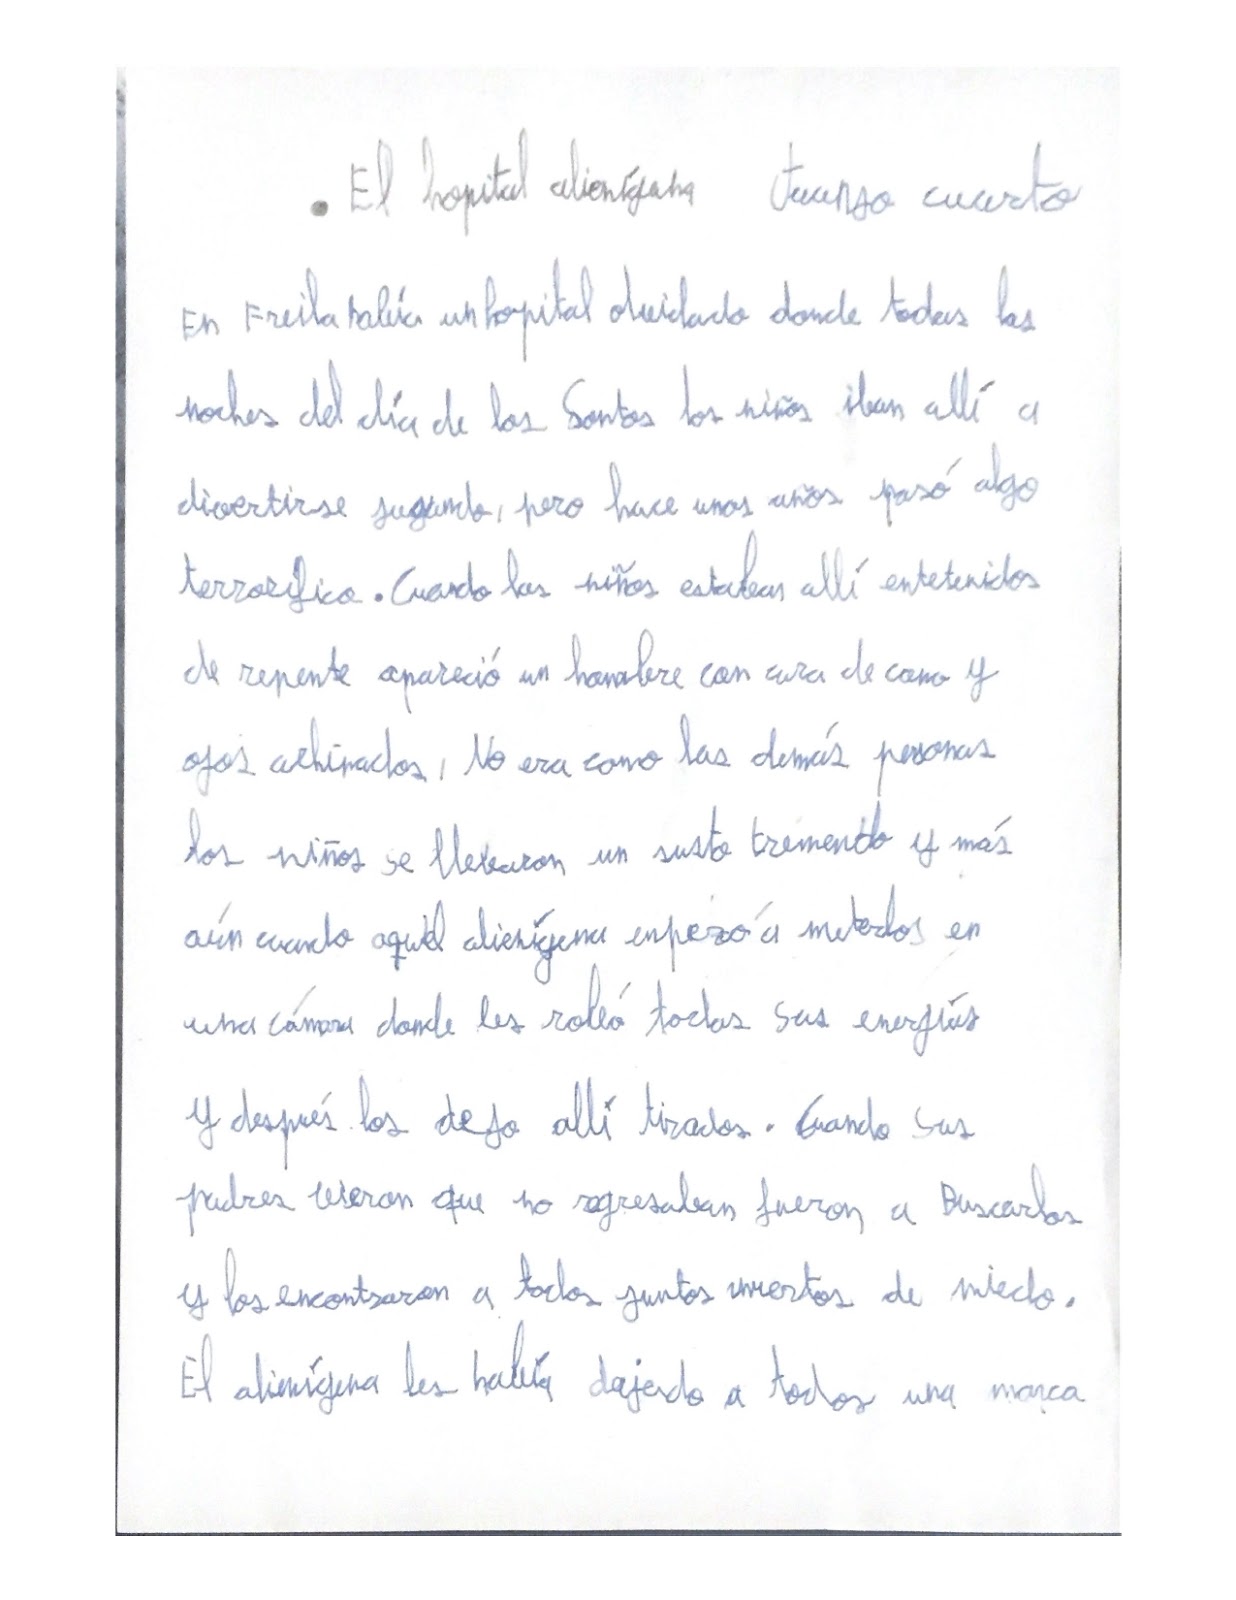 . El hopital alienígena cuarto
En Freila había un hopital olvidado donde todas las
noches del día de los Santos los niños iban allí a
divertirse jugando, pero hace unos años pasó algo
terrorífico. Cuando los niños estaban allí entetenidos
de repente apareció un hombre con cara de como y
ojos achinados, No era como las demás personas
los niños se llevaron un susto tremendo y más
aún cuando aquél alienígena enpezó a meterlos en
una cámara donde les robó todas sus energías
y después los dejo allí tirados. Cuando sus
padres vieron que no regresaban fueron a Buscarlos
y los encontraron a todos juntos muertos de miedo.
El alienígena les había dajado a todos una marca